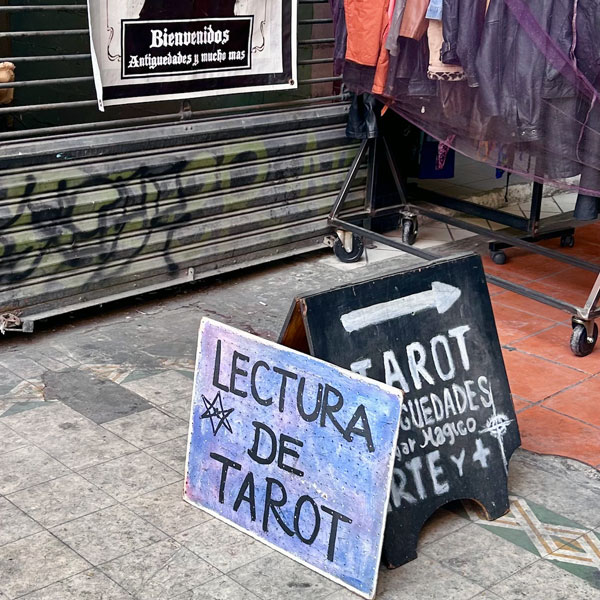 Bienvenidos
Antiguedades y mucho mas
LECTURA
DE
TAROT
TAROT
GUEDADES
gar Magico
RTE Y +